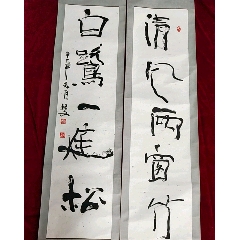 清风两窗竹
白鹭一庭松